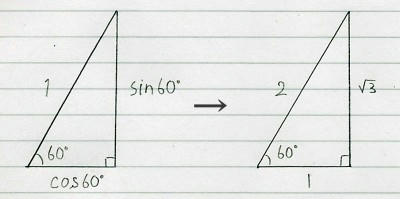 1
sin60°
60°
cos60°
→
2
√3
60°
1